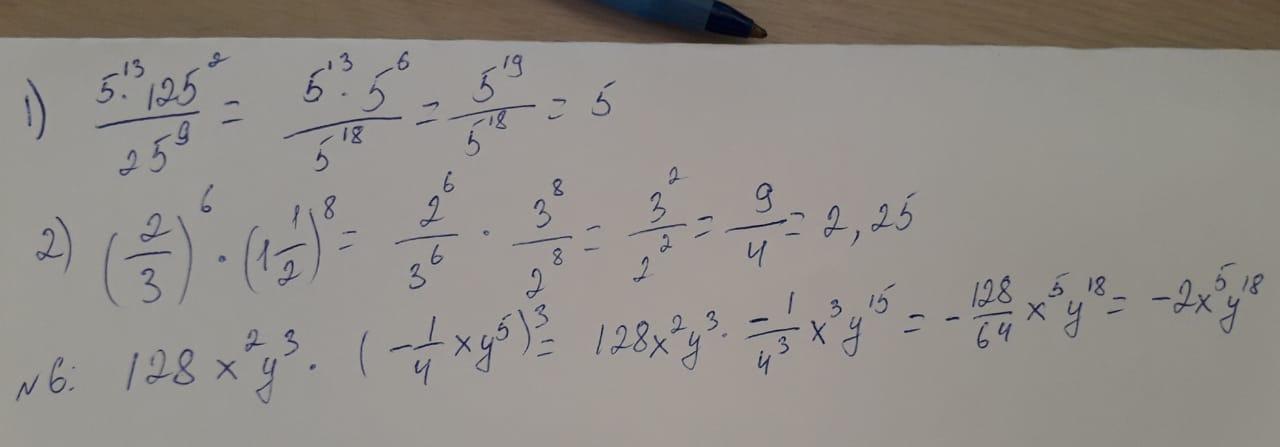 1) (5^13 · 125^2)/(25^9) = (5^13 · 5^6)/(5^18) = 5^19/5^18 = 5
2) (2/3)^6 · (1 1/2)^8 = 2^6/3^6 · 3^8/2^8 = 3^2/2^2 = 9/4 = 2,25
№6: 128x^2y^3 · (-1/4 xy^5)^3 = 128x^2y^3 · -1/4^3 x^3y^15 = -128/64 x^5y^18 = -2x^5y^18